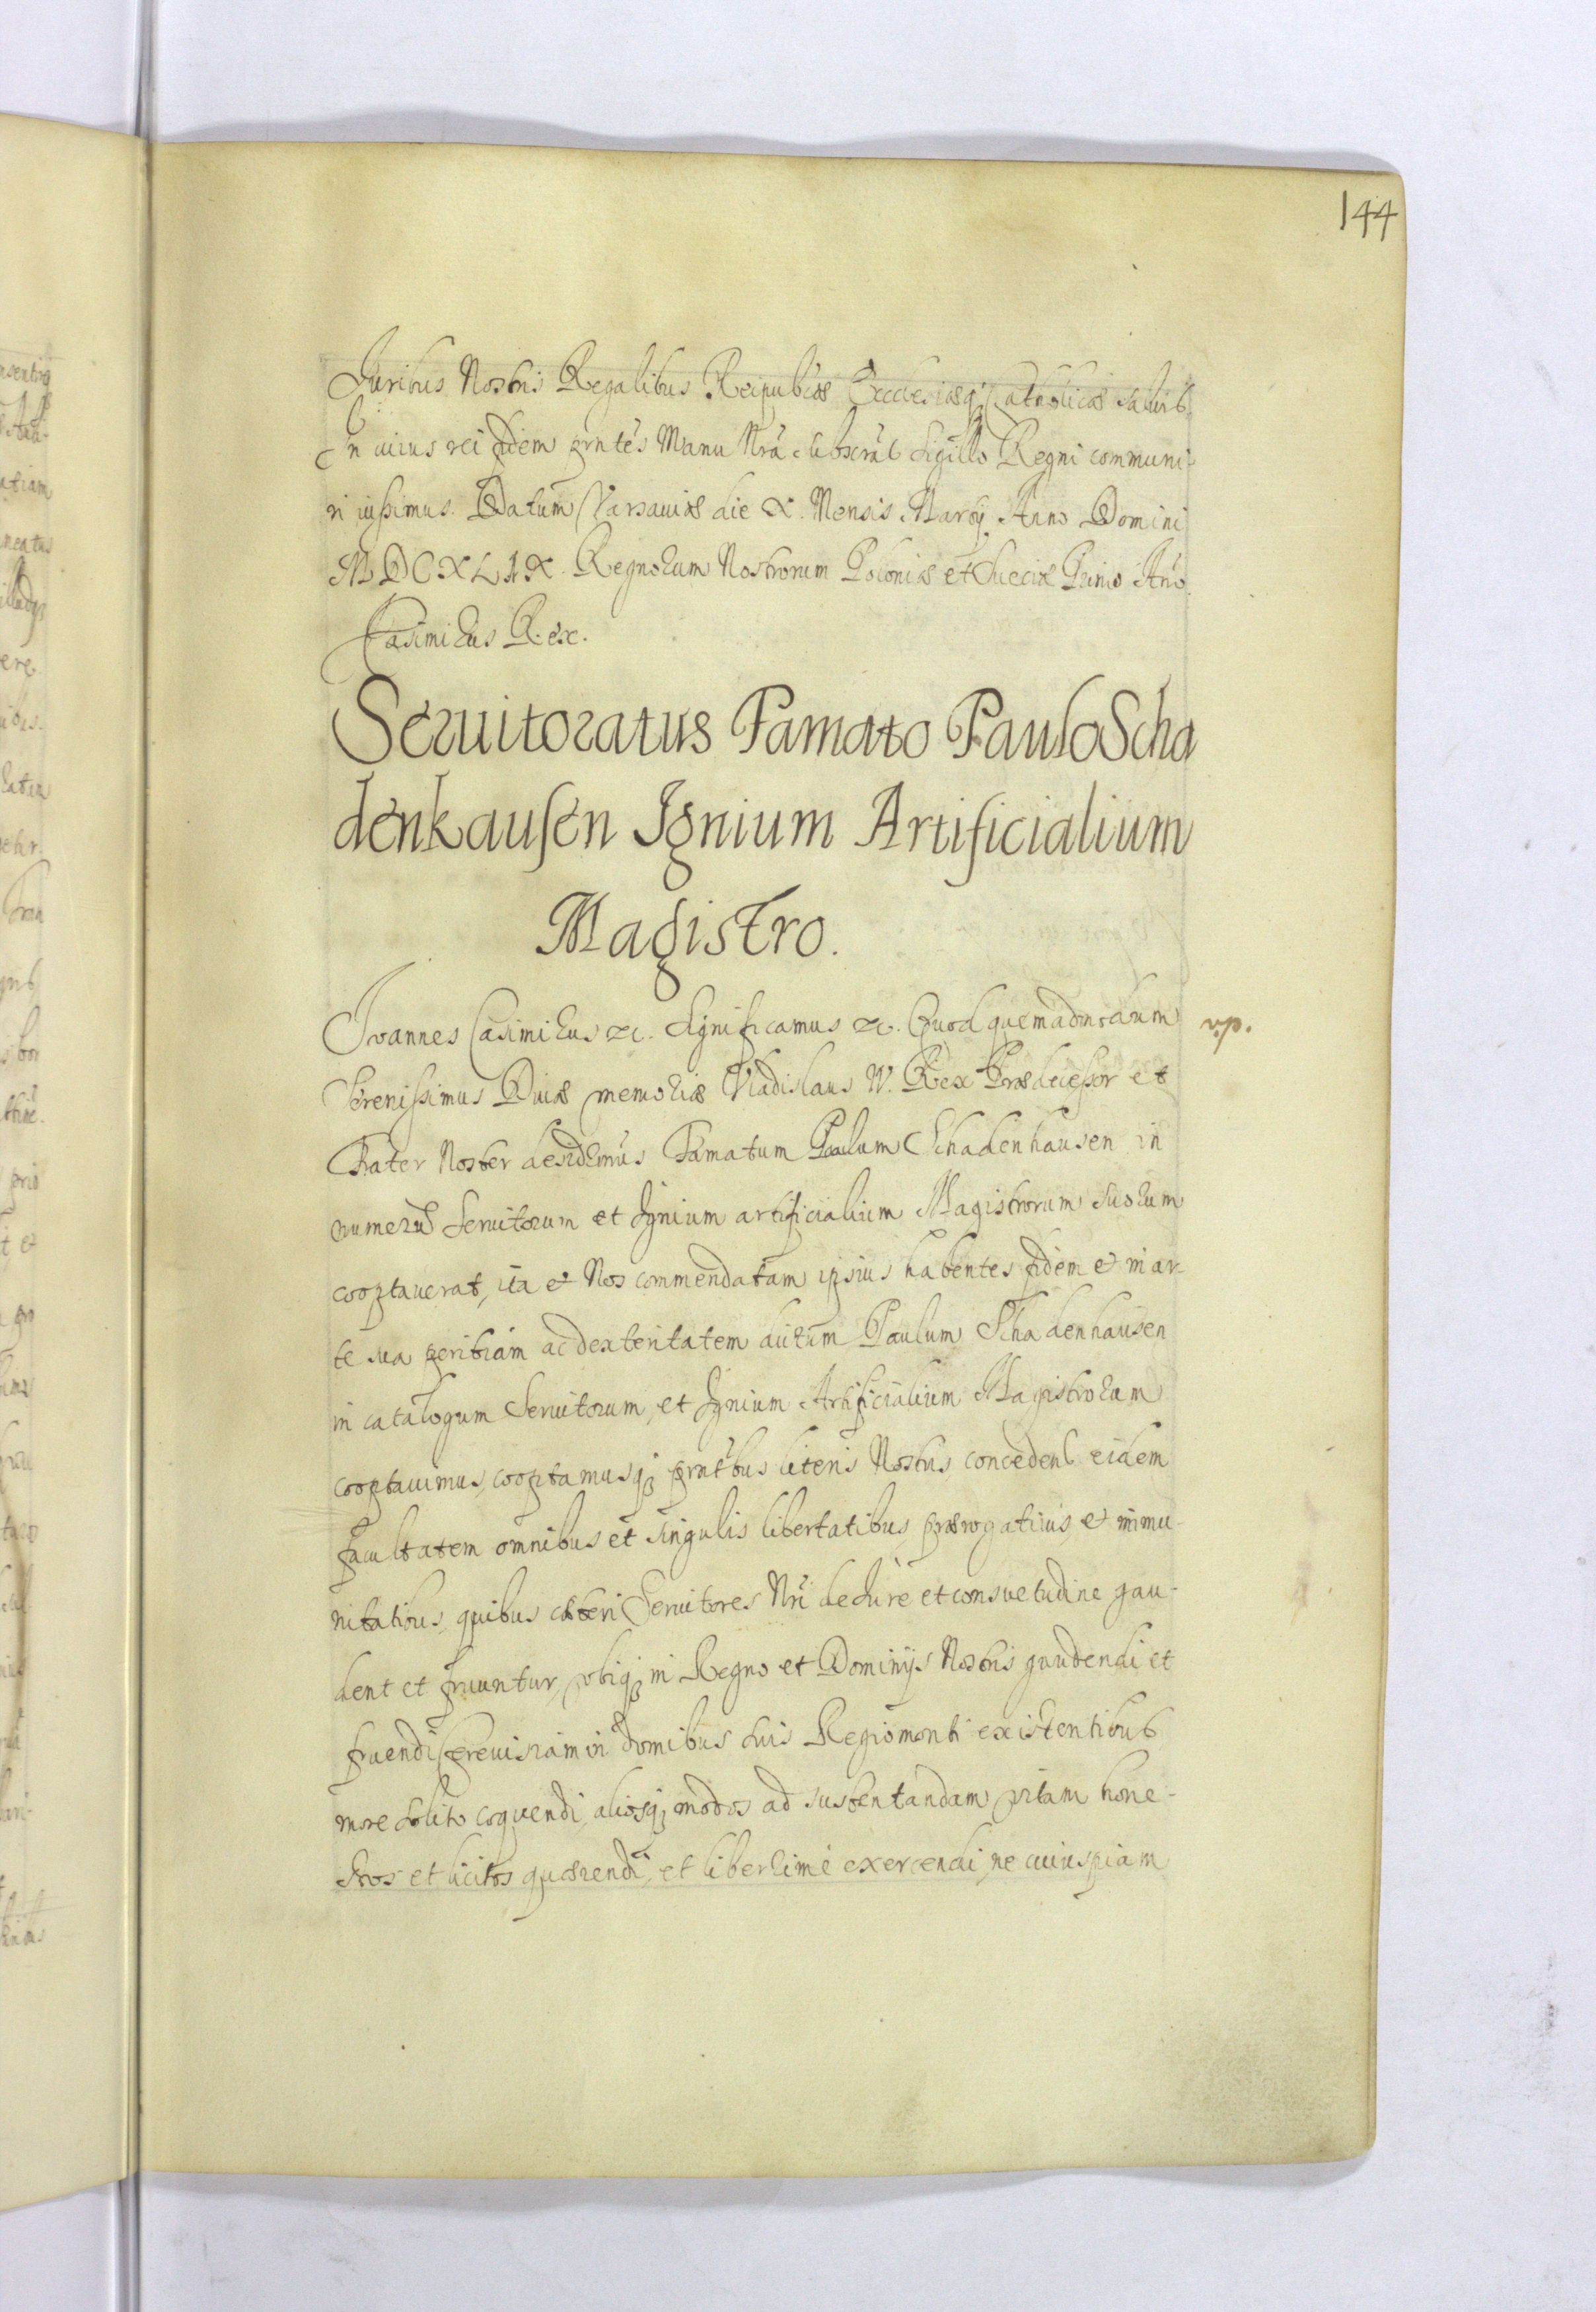 144
Iuribus Nostris Regalibus Reipublicæ Ecclesiæq; Catholicæ saluis.
In cuius rei fidem prntes Manu Nrã subscrat Sigillo Regni communi-
ri iussimus. Datum Varsauiæ die X. Mensis Martij Anno Domini
MDCXLIX. Regnorum Nostrorum Poloniæ et Sueciæ Primo Ano.
Casimirus Rex.
Seruitoratus Famato Paulo Scha
denhausen Ignium Artificialium
Magistro.
Ioannes Casimirus &c. Significamus &c. Quod quemadmodum
vp.
Serenissimus Diuæ memoriæ Vladislaus IV. Rex Prædecessor et
Frater Noster desidrmus Famatum Paulum Schadenhausen in
numerũ Seruitorum et Ignium artificialium Magistrorum suorum
cooptauerat, ita et Nos commendatam ipsius habentes fidem et in ar-
te sua peritiam ac dexteritatem dictum Paulum Schadenhausen
in catalogum Seruitorum, et Ignium Artificialium Magistrorum
cooptauimus, cooptamusq; prntbus literis Nostris, concedent eidem
facultatem omnibus et singulis libertatibus, prærogatiuis, et immu-
nitatibus, quibus cæteri Seruitores Nri de iure et consuetudine gau-
dent et fruuntur, vbiq; in Regno et Dominijs Nostris gaudendi et
fruendi Cereuisiam in domibus suis Regiomonti existentibus
more solito coquendi, aliosq; modos ad sustentandam vitam hone-
stos et licitos quærendi, et liberrimè exercendi, ne cuiuspiam